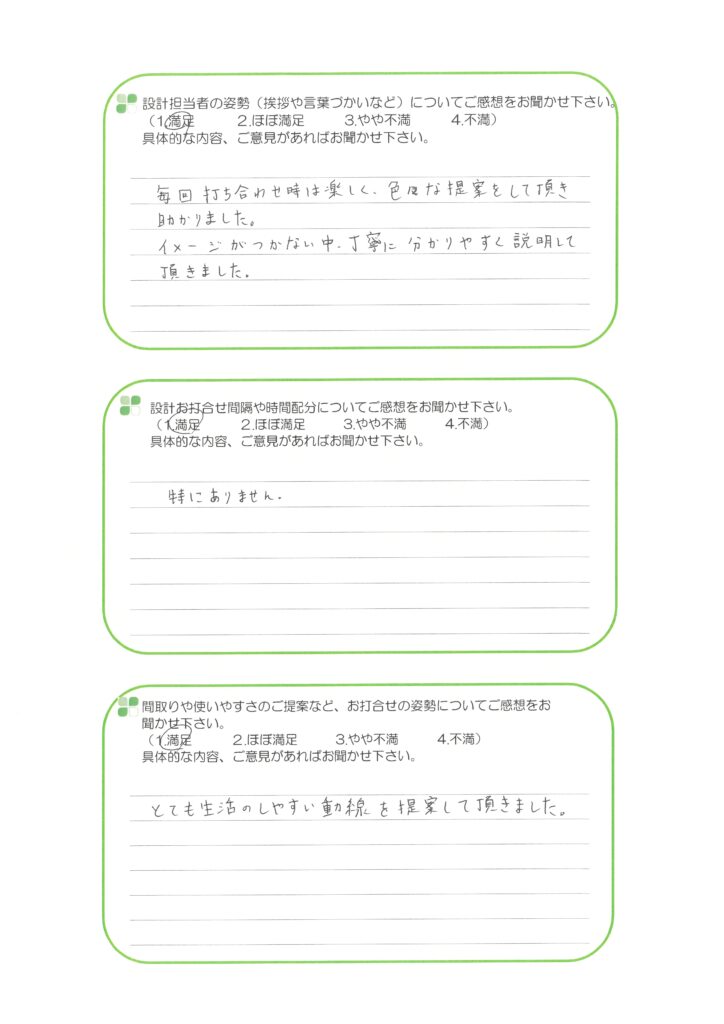 設計担当者の姿勢（挨拶や言葉づかいなど）についてご感想をお聞かせ下さい。
（1.満足　2.ほぼ満足　3.やや不満　4.不満）
具体的な内容、ご意見があればお聞かせ下さい。
毎回打ち合わせ時は楽しく、色々な提案をして頂き
助かりました。
イメージがつかない中、丁寧に分かりやすく説明して
頂きました。
設計お打合せ間隔や時間配分についてご感想をお聞かせ下さい。
（1.満足　2.ほぼ満足　3.やや不満　4.不満）
具体的な内容、ご意見があればお聞かせ下さい。
特にありません。
間取りや使いやすさのご提案など、お打合せの姿勢についてご感想をお
聞かせ下さい。
（1.満足　2.ほぼ満足　3.やや不満　4.不満）
具体的な内容、ご意見があればお聞かせ下さい。
とても生活のしやすい動線を提案して頂きました。